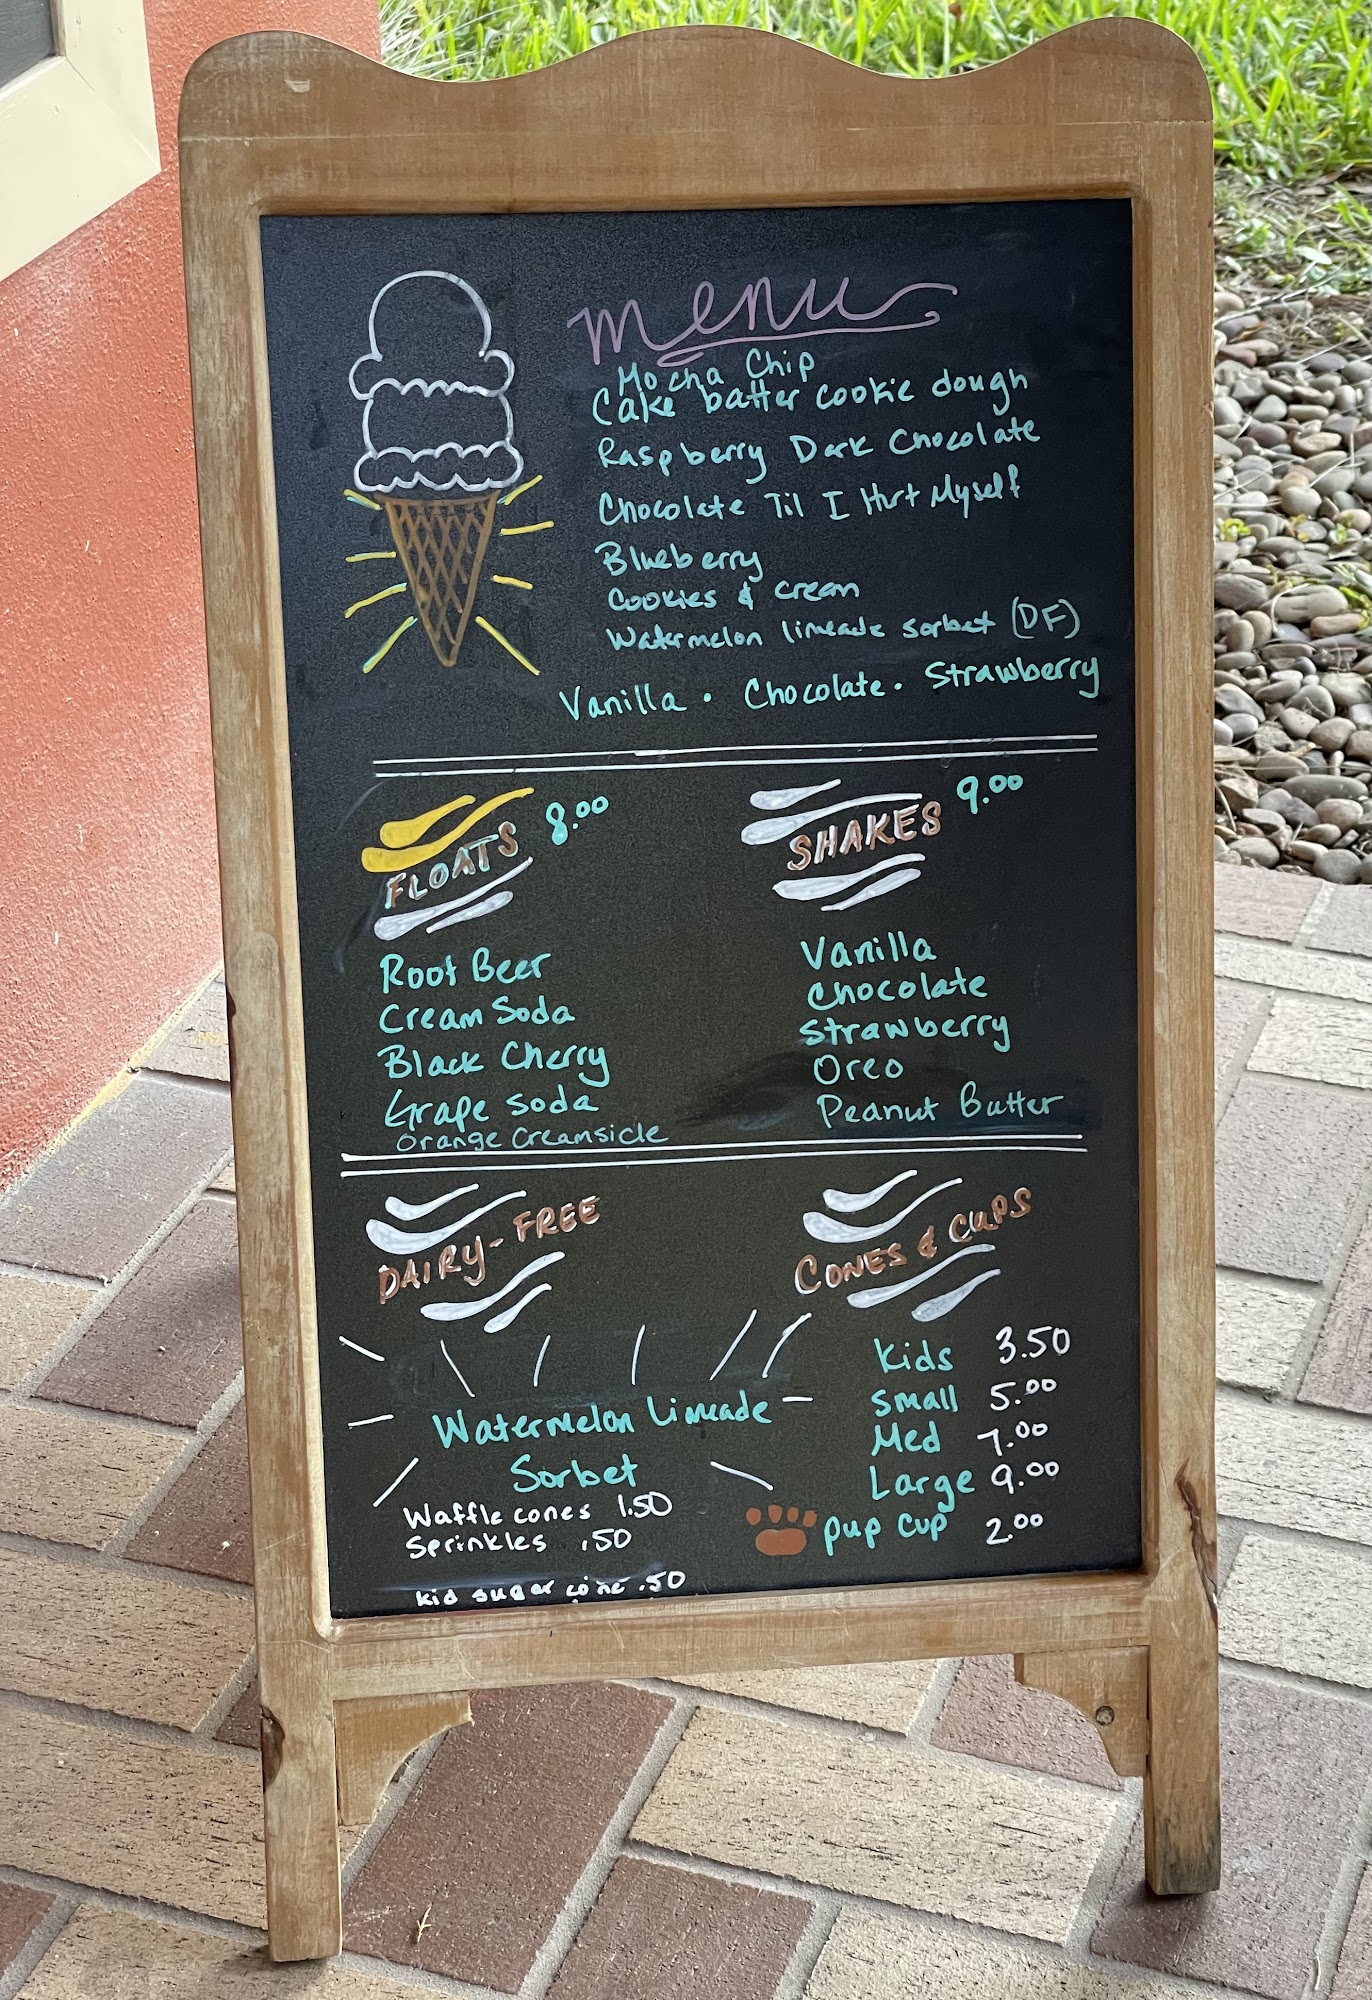 menu
Mocha Chip
Cake batter cookie dough
Raspberry Dark Chocolate
Chocolate Til I Hurt Myself
Blueberry
Cookies & cream
Watermelon limeade sorbet (DF)
Vanilla • Chocolate • Strawberry
FLOATS 8.00
Root Beer
Cream Soda
Black Cherry
Grape soda
Orange Creamsicle
SHAKES 9.00
Vanilla
Chocolate
Strawberry
Oreo
Peanut Butter
DAIRY-FREE
Watermelon Limeade
Sorbet
Waffle cones 1.50
Sprinkles .50
kid sugar cone .50
CONES & CUPS
Kids 3.50
Small 5.00
Med 7.00
Large 9.00
pup cup 2.00